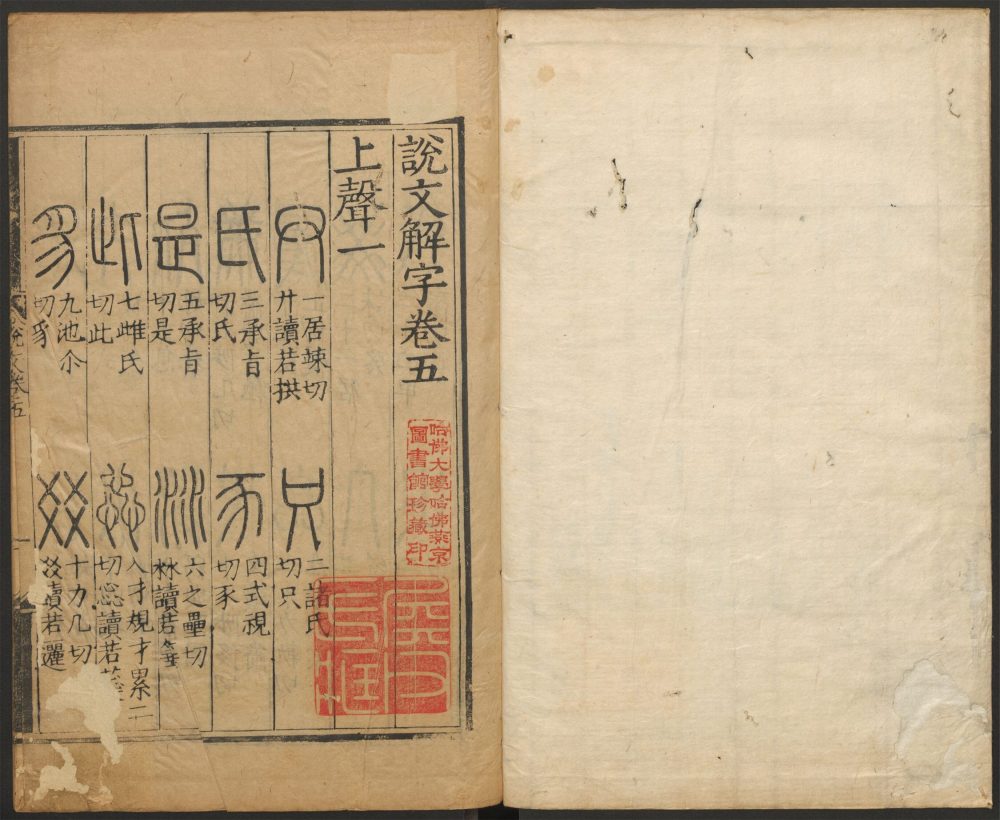 說文解字卷五
上聲一
𠬞 一居竦切 廾讀若拱
只 二諸氏切 只
氏 三承旨切 氏
豕 四式視切 豕
是 五承旨切 是
沝 六之壘切 沝讀若
此 七雌氏切 此
惢 八才規才累二切 惢讀若
豸 九池尒切 豸
㸚 十力几切 㸚讀若邐
說文卷五
一
哈佛大學哈佛燕京
圖書館珍藏印